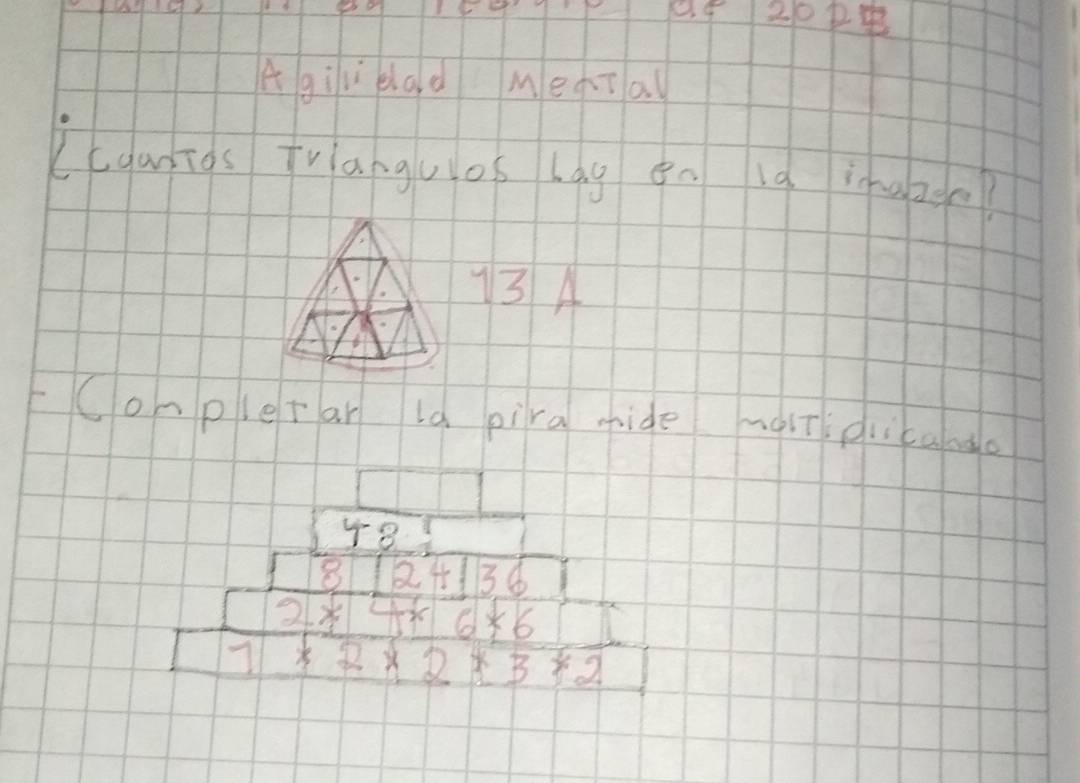 de 202
Agilidad Mental
¿Cuantos Triangulos hay en la imagen?
13 A
- Completar la piramide moltiplicando
48
8 24 36
2 * 4 * 6 * 6
1 * 2 * 2 * 3 * 2